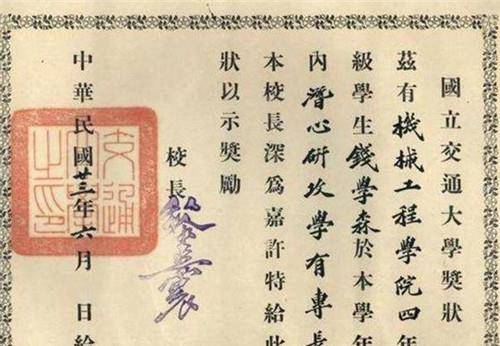 國立交通大學獎狀
茲有機械工程學院四年
級學生錢學森於本學年
內潛心研攻學有專長
本校長深為嘉許特給此
狀以示獎勵
校長
黎照寰
中華民國廿三年六月 日給
交通大學之印